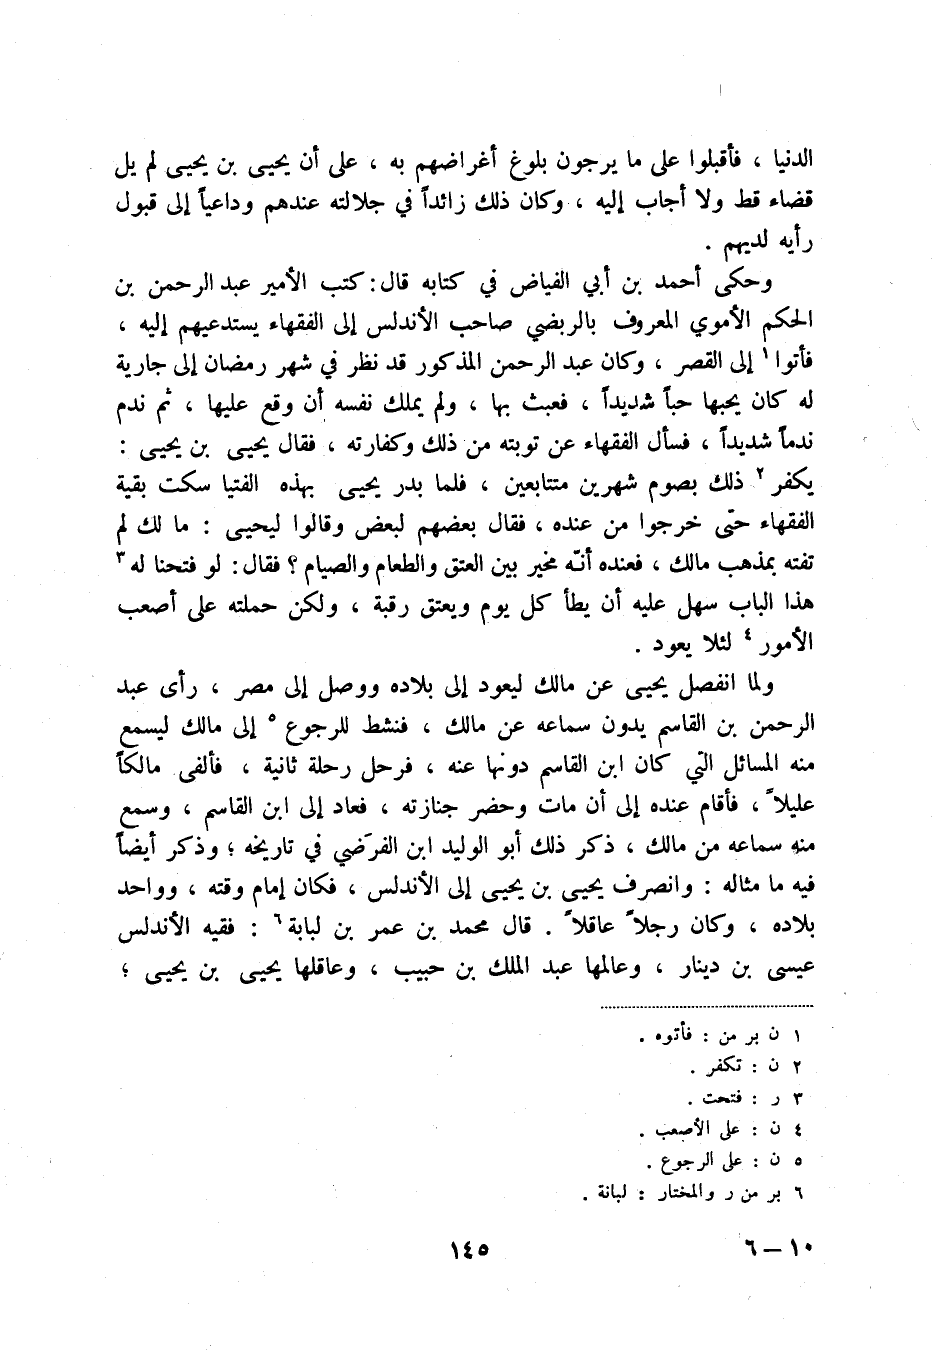 الدنيا ، فأقبلوا على ما يرجون بلوغ أغراضهم به ، على أن يحيى بن يحيى لم يل
قضاء قط ولا أجاب إليه ، وكان ذلك زائداً في جلالته عندهم وداعياً إلى قبول
رأيه لديهم .
وحكى أحمد بن أبي الفياض في كتابه قال : كتب الأمير عبد الرحمن بن
الحكم الأموي المعروف بالربضي صاحب الأندلس إلى الفقهاء يستدعيهم إليه ،
فأتوا ١ إلى القصر ، وكان عبد الرحمن المذكور قد نظر في شهر رمضان إلى جارية
له كان يحبها حباً شديداً ، فعبث بها ، ولم يملك نفسه أن وقع عليها ، ثم ندم
ندماً شديداً ، فسأل الفقهاء عن توبته من ذلك وكفارته ، فقال يحيى بن يحيى :
يكفر ٢ ذلك بصوم شهرين متتابعين ، فلما بدر يحيى بهذه الفتيا سكت بقية
الفقهاء حتى خرجوا من عنده ، فقال بعضهم لبعض وقالوا ليحيى : ما لك لم
تفته بمذهب مالك ، فعنده أنّه مخير بين العتق والطعام والصيام ؟ فقال : لو فتحنا له ٣
هذا الباب سهل عليه أن يطأ كل يوم ويعتق رقبة ، ولكن حملته على أصعب
الأمور ٤ لئلا يعود .
ولما انفصل يحيى عن مالك ليعود إلى بلاده ووصل إلى مصر ، رأى عبد
الرحمن بن القاسم يدون سماعه عن مالك ، فنشط للرجوع ٥ إلى مالك ليسمع
منه المسائل التي كان ابن القاسم دونها عنه ، فرحل رحلة ثانية ، فألفى مالكاً
عليلاً ، فأقام عنده إلى أن مات وحضر جنازته ، فعاد إلى ابن القاسم ، وسمع
منه سماعه من مالك ، ذكر ذلك أبو الوليد ابن الفرَضي في تاريخه ؛ وذكر أيضاً
فيه ما مثاله : وانصرف يحيى بن يحيى إلى الأندلس ، فكان إمام وقته ، وواحد
بلاده ، وكان رجلاً عاقلاً . قال محمد بن عمر بن لبابة ٦ : فقيه الأندلس
عيسى بن دينار ، وعالمها عبد الملك بن حبيب ، وعاقلها يحيى بن يحيى ؛
١ ن بر من : فأتوه .
٢ ن : تكفر .
٣ ر : فتحت .
٤ ن : على الأصعب .
٥ ن : على الرجوع .
٦ بر من ر والمختار : لبانة .
١٠ – ٦
١٤٥